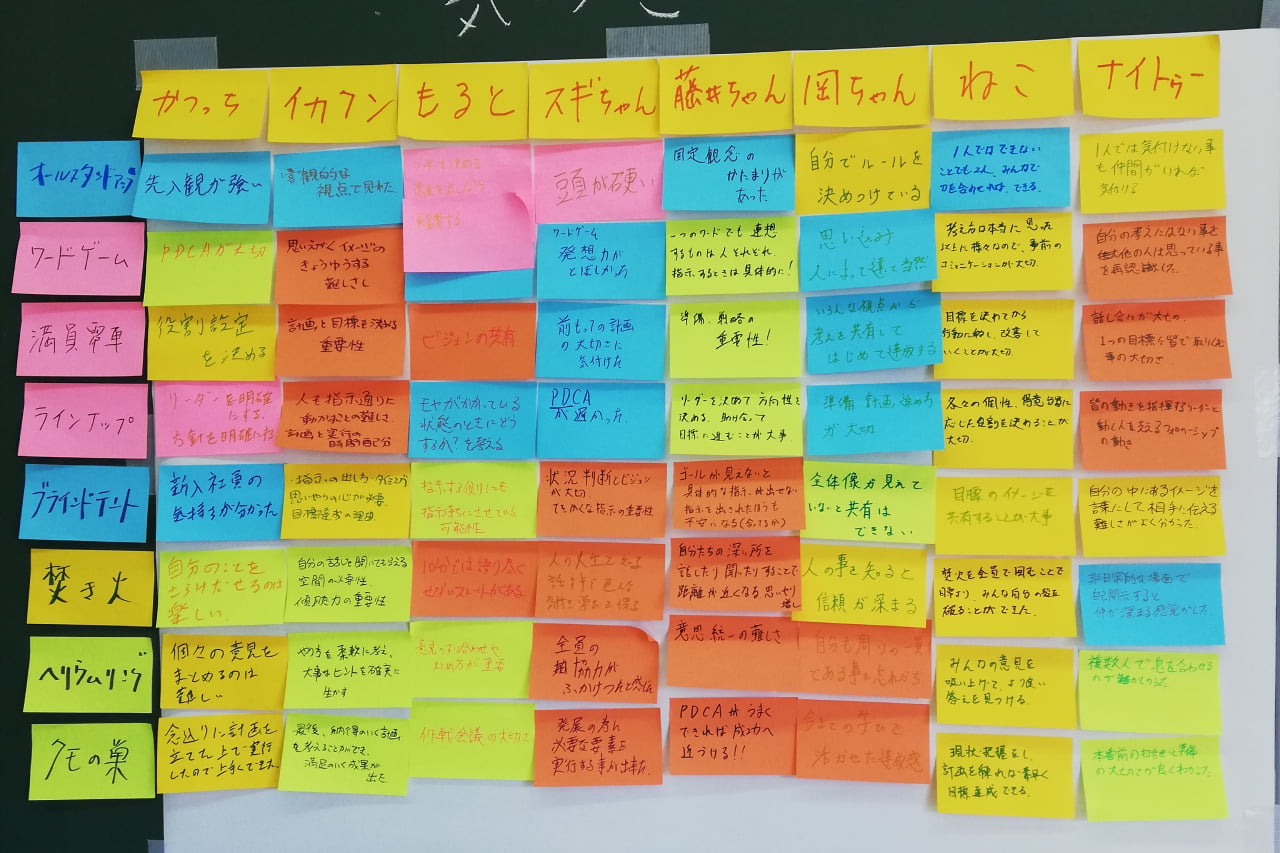 かつっち
イカフン
もると
スギちゃん
藤井ちゃん
岡ちゃん
ねこ
ナイトゥー
オールスタンドアップ
先入観が強い
客観的な
視点で見れた
頭が硬い
固定観念の
かたまりが
あった
自分でルールを
決めつけている
1人ではできない
ことでも2人、みんなで
力を合わせれば、できる。
1人では気付けない事
も仲間がいれば
気付ける
ワードゲーム
PDCAが大切
思いえがくイメージの
きょうゆうする
難しさ
ワードゲーム
発想力が
とぼしかった
一つのワードでも連想
するものは人それぞれ
指示するときは具体的に!
思い込み
人によって違って当然
考え方は本当に
様々なので、事前の
コミュニケーションが大切。
自分の考えにはない事を
他の人は思っている事
を再認識した。
満員電車
役割設定
を決める
計画と目標を決める
重要性
ビジョンの共有
前もっての計画
の大切さに
気付けた
準備、戦略の
重要性!
いろんな視点から
考えを共有して
はじめて達成する
目標を決めてから
行動に移し、改善して
いくことが大切。
話し合いが大もの。
1つの目標を皆で取りくむ
事の大切さ
ラインナップ
リーダーを明確
にする。
方針を明確にする
人も指示通りに
動かすことの難しさ
計画と実行の
時間配分
モヤがかかっている
状態のときにどう
するか?を考える
PDCA
が遅かった。
リーダーを決めて方向性を
決める、助け合って
目標に進むことが大事
準備 計画 進める
が大切
各々の個性、得意分野に
応じた役割を決めることが
大切。
皆の動きを指揮するリーダーと
動く人を支えるフォロワーシップ
の動き
ブラインドテント
新入社員の
気持ちが分かった
・指示の出し方・タイミング
思いやりの心が必要
目標達成の理由
指示する側としても
指示待ちにさせている
可能性
状況判断とビジョン
が大切。
てきかくな指示の重要性
ゴールが見えないと
具体的な指示が出せない
指示を出されたほうも
不安になる(合ってるか)
全体像が見えて
いないと共有は
できない
目標のイメージを
共有することが大事
自分の中にあるイメージを
言葉にして相手に伝える
難しさがよく分かった。
焚き火
自分のことを
さらけだせるのは
楽しい
自分の話しを聞いてもらえる
空間の大事性
傾聴力の重要性
10分では語り尽く
せないストーリーがある。
人の人生を知る
自分たちの深い所を
話したり聞いたりすることで
距離が近くなる思いやり
増し
人の事を知ると
信頼が深まる
焚火を全員で囲むことで
日常より、みんな自分の殻を
破ることができた。
非日常的な場面で
自己開示すると
仲が深まる感覚がした。
ヘリウムリング
個々の意見を
まとめるのは
難しい
やり方を柔軟に考え、
大事なヒントを確実に
生かす
意見のすり合わせや
まとめ方が重要
全員の
協力が
ふかけつだと感じた
意思統一の難しさ
自分も周りの一員
である事を忘れがち
みんなの意見を
吸い上げて、より良い
答えを見つける。
複数人で息を合わせる
のが難かった
クモの巣
念入りに計画を
立てた上で実行
したので上手くできた
最後、納得のいく計画
を考えることができ、
満足のいく成果が
出た
作戦会議の大切さ
発展の為に
必要な要素を
実行する事が出来た。
PDCAがうまく
できれば成功へ
近づける!!
今までの学びを
活かせた達成感
現状把握をし、
計画を練れば素早く
目標達成できる。
本番前の打合せと準備
の大切さが良くわかった。